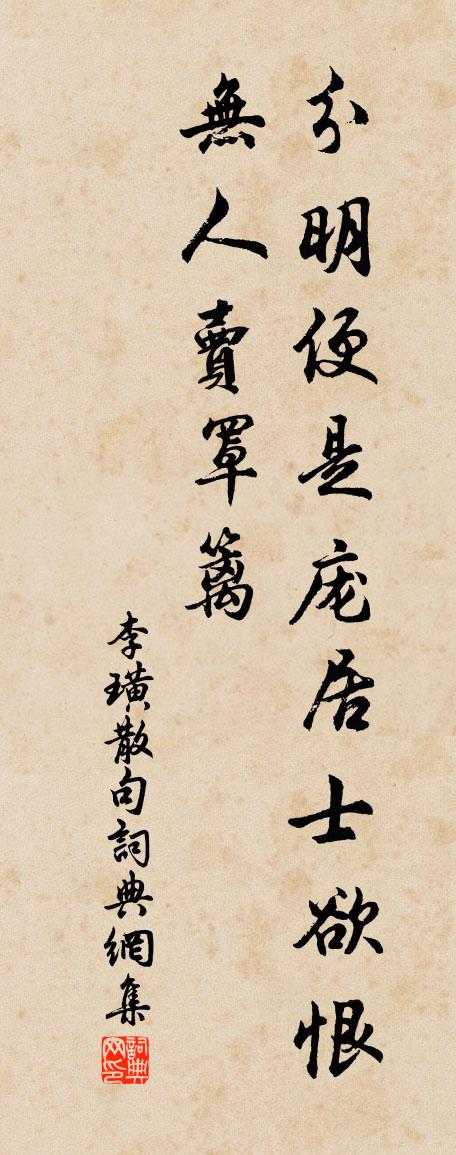 分明便是庞居士欲恨
無人賣罩籬
李璜散句詞典網集
詞典网印